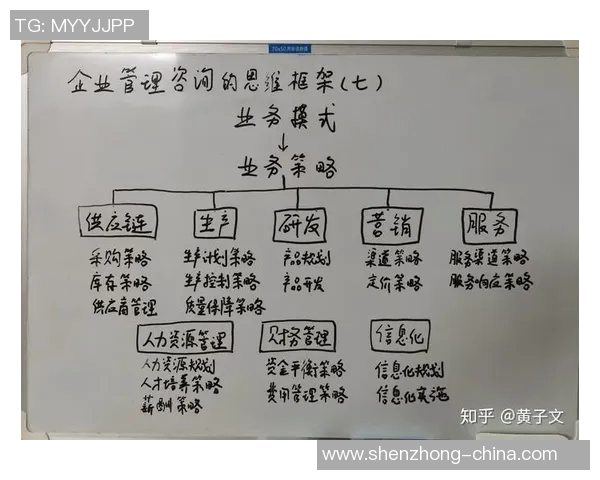 TG: MYYJJPP
企业管理咨询的思维框架(七)
业务模式
↓
业务策略
供应链 生产 研发 营销 服务
采购策略 生产计划策略 产品规划 渠道策略 服务渠道策略
库存策略 生产控制策略 产品开发 定价策略 服务响应策略
供应商管理 质量保障策略
人力资源管理 财务管理 信息化
人力资源规划 资金平衡策略 信息化规划
人才培养策略 费用管理策略 信息化实施
薪酬策略
知乎 @黄子文
www.shenzhong-china.com